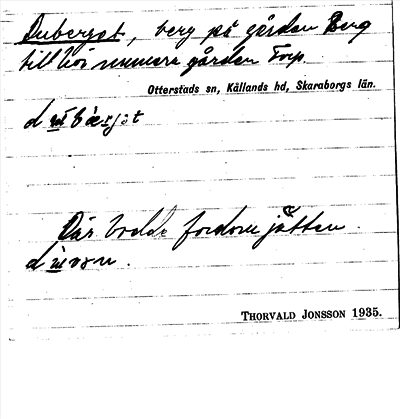 Duberget, berg på gården Berg
tillhör numera gården Torp.
Otterstads sn, Kållands hd, Skaraborgs län.
Där bodde fordom jätten
THORVALD JONSSON 1935.